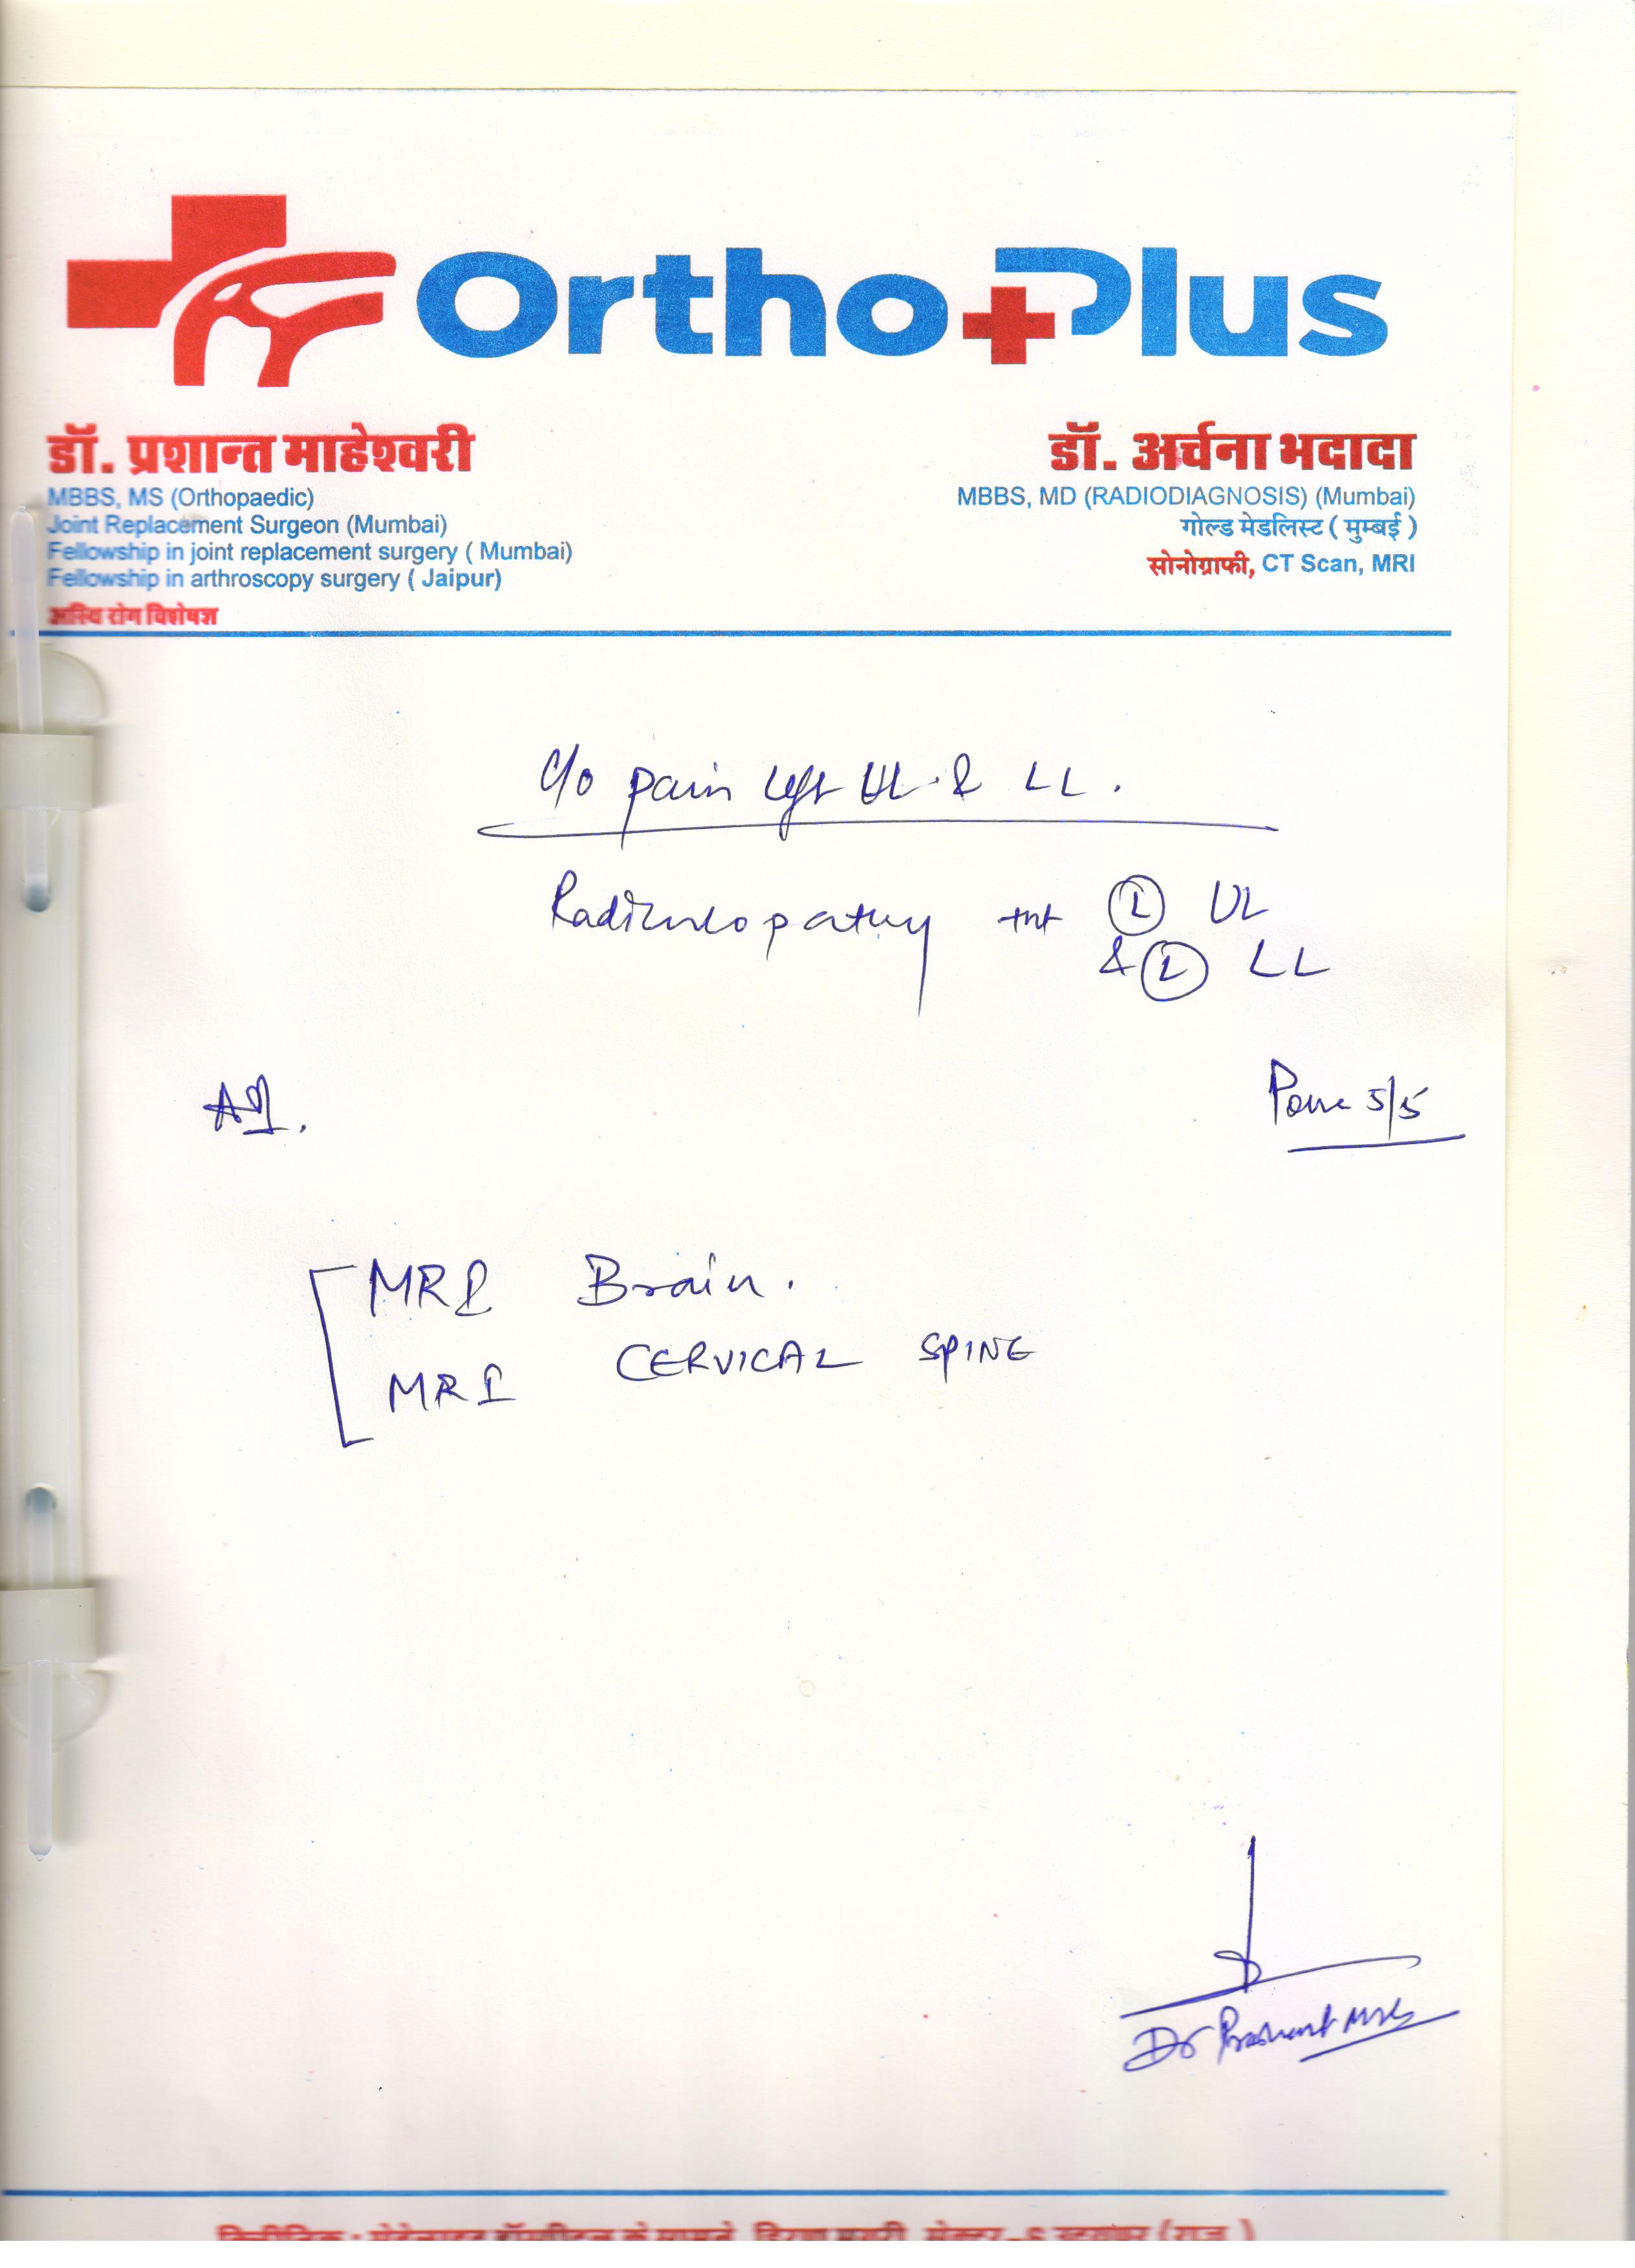 Ortho+Plus
डॉ. प्रशान्त माहेश्वरी
MBBS, MS (Orthopaedic)
Joint Replacement Surgeon (Mumbai)
Fellowship in joint replacement surgery ( Mumbai)
Fellowship in arthroscopy surgery ( Jaipur)
अस्थि रोग विशेषज्ञ
डॉ. अर्चना भदादा
MBBS, MD (RADIODIAGNOSIS) (Mumbai)
गोल्ड मेडलिस्ट ( मुम्बई )
सोनोग्राफी, CT Scan, MRI
c/o pain left UL & LL.
Radiculopathy L UL
& L LL
Power 5/5
MRI Brain.
MRI CERVICAL SPINE
Dr Prashant